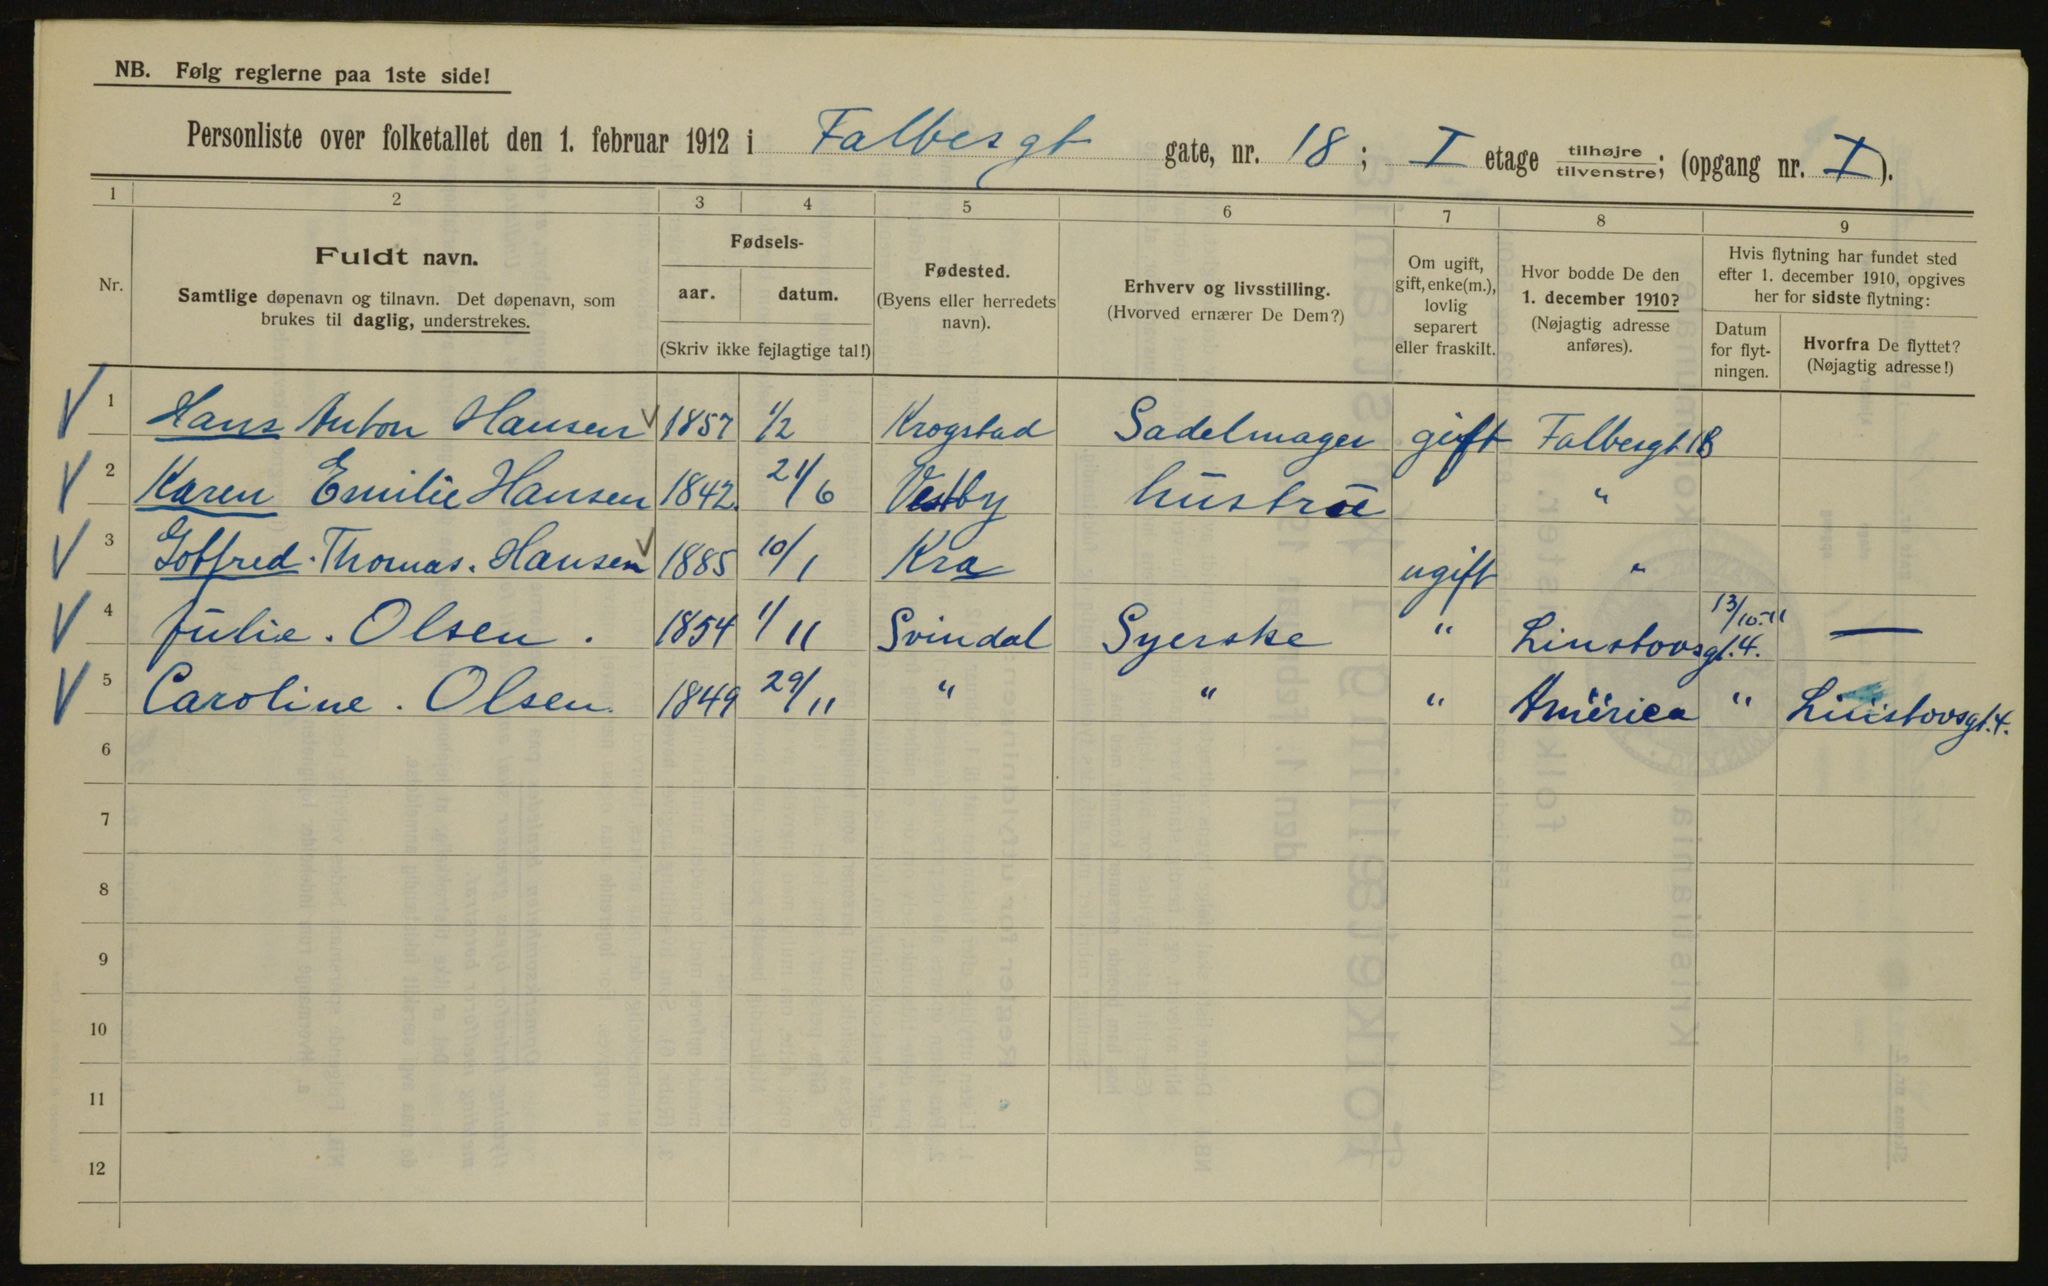 NB. Følg reglerne paa 1ste side!
Personliste over folketallet den 1. februar 1912 i Falbesgt gate, nr. 18; I etage tilhøjre/tilvenstre; (opgang nr. I).
1 2 3 4 5 6 7 8 9
Nr.
Fuldt navn.
Samtlige døpenavn og tilnavn. Det døpenavn, som
brukes til daglig, understrekes.
Fødsels-
aar. datum.
(Skriv ikke fejlagtige tal!)
Fødested.
(Byens eller herredets
navn).
Erhverv og livsstilling.
(Hvorved ernærer De Dem?)
Om ugift,
gift, enke(m.),
lovlig
separert
eller fraskilt.
Hvor bodde De den
1. december 1910?
(Nøjagtig adresse
anføres).
Hvis flytning har fundet sted
efter 1. december 1910, opgives
her for sidste flytning:
Datum
for flyt-
ningen.
Hvorfra De flyttet?
(Nøjagtig adresse!)
1 Hans Anton Hansen 1857 1/2 Krogstad Sadelmager gift Falbesgt. 18
2 Karen Emilie Hansen 1842. 21/6 Vestby hustrue "
3 Gotfred. Thomas. Hansen 1885 10/1 Kra ugift "
4 Julie. Olsen. 1854 1/11 Svindal Syerske " Linstovsgt. 4. 13/10-11 —
5 Caroline. Olsen. 1849 29/11 " " " America " Linstovsgt. 4.
6
7
8
9
10
11
12